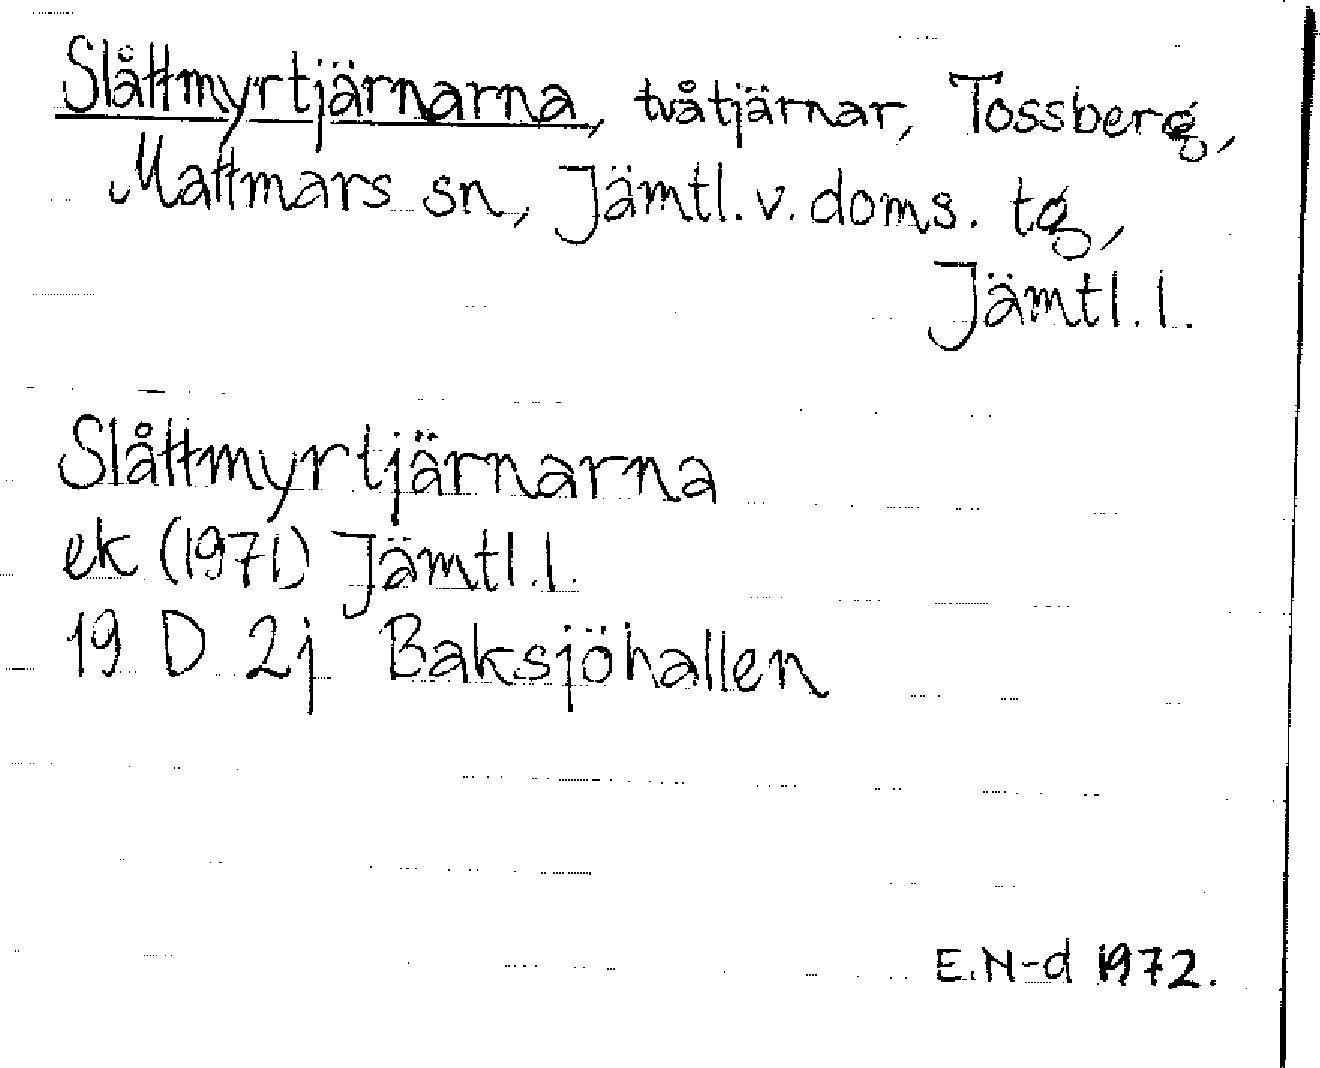 Slåttmyrtjärnarna, två tjärnar, Tossberg,
Mattmars sn, Jämtl. v. doms. tg,
Jämtl. l.
Slåttmyrtjärnarna
ek (1971) Jämtl. l.
19 D 2j Baksjöhallen
E.N-d 1972.